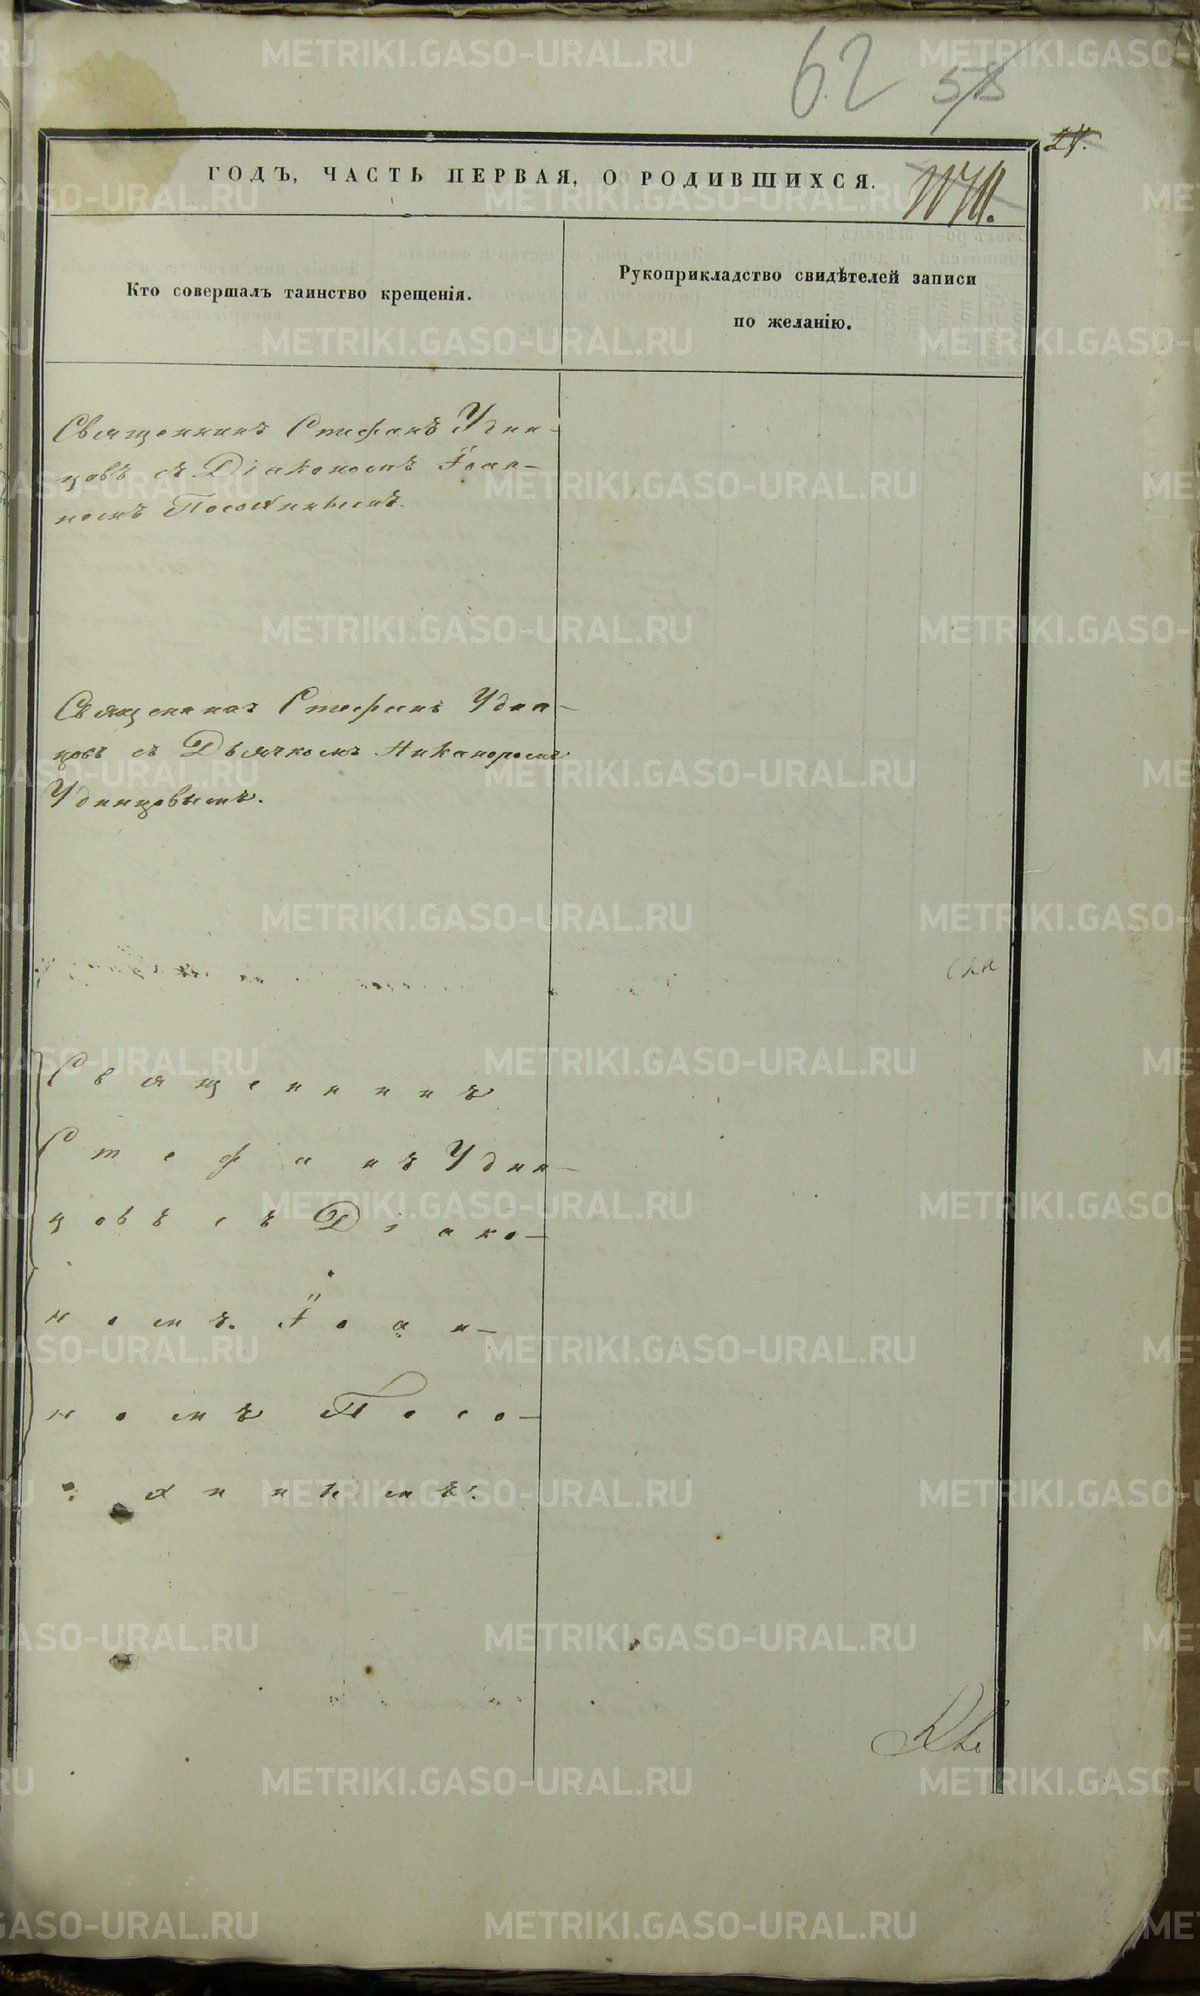 62 58
24.
ГОДЪ, ЧАСТЬ ПЕРВАЯ, О РОДИВШИХСЯ.
Кто совершалъ таинство крещенія.
Рукоприкладство свидѣтелей записи
по желанію.
Священникъ Стефанъ Удин-
цовъ съ Діакономъ Іоан-
номъ
Священникъ Стефанъ Удин-
цовъ съ Дьячкомъ Никаноромъ
Удинцовымъ.
Священникъ
Стефанъ Удин-
цовъ съ Діако-
номъ Іоан-
номъ
METRIKI.GASO-URAL.RU